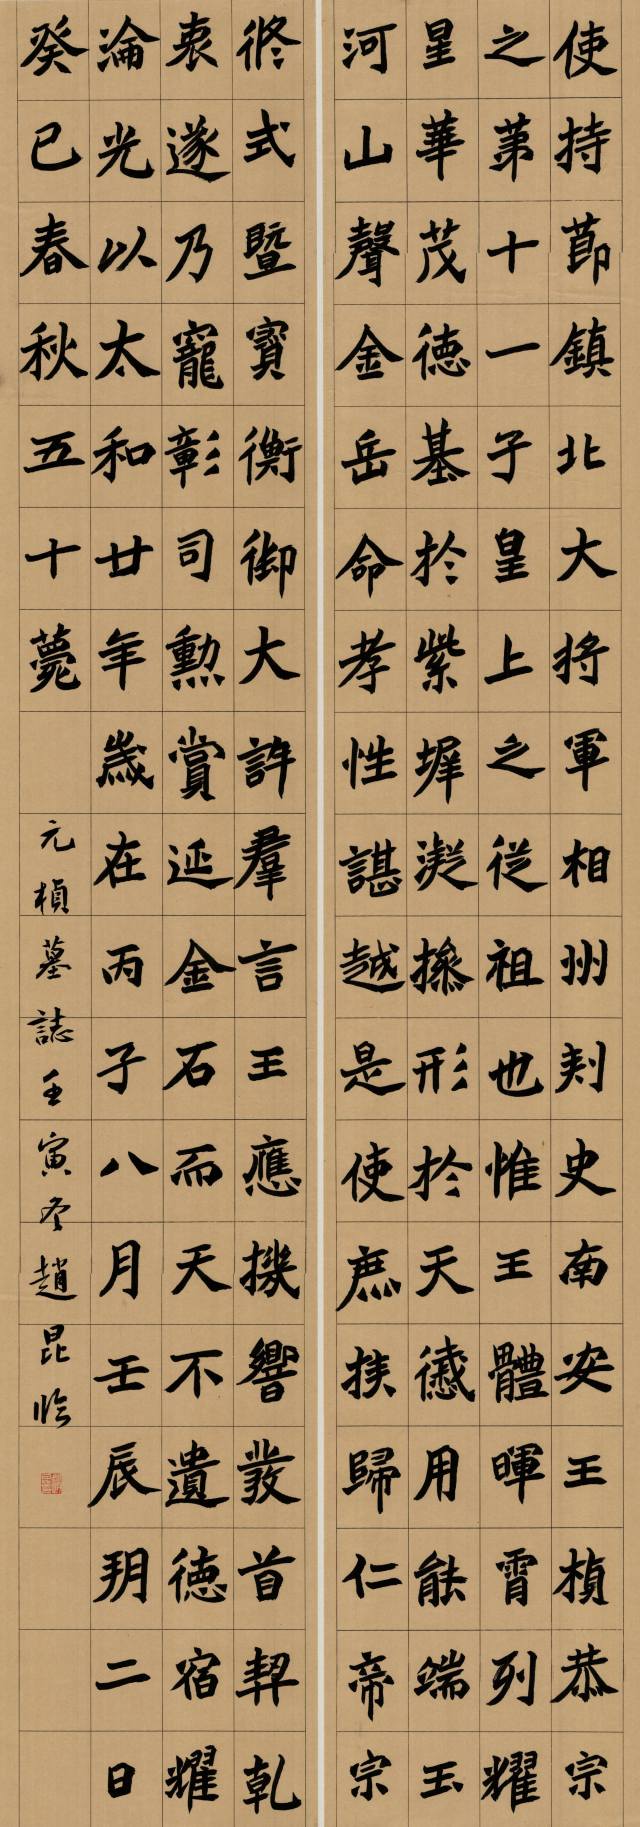 使持節鎮北大将軍相州刾史南安王楨恭宗
之苐十一子皇上之従祖也惟王體暉霄列耀
星華茂徳基扵紫墀凝操形扵天感用能端玉
河山聲金岳命孝性諶越是使庶族歸仁帝宗
攸式暨寳衡御大許羣言王應機響發首契乹
衷遂乃寵彰司勲賞延金石而天不遺徳宿耀
淪光以太和廿年歲在丙子八月壬辰玥二日
癸已春秋五十薨
元楨墓誌壬寅冬趙昆临